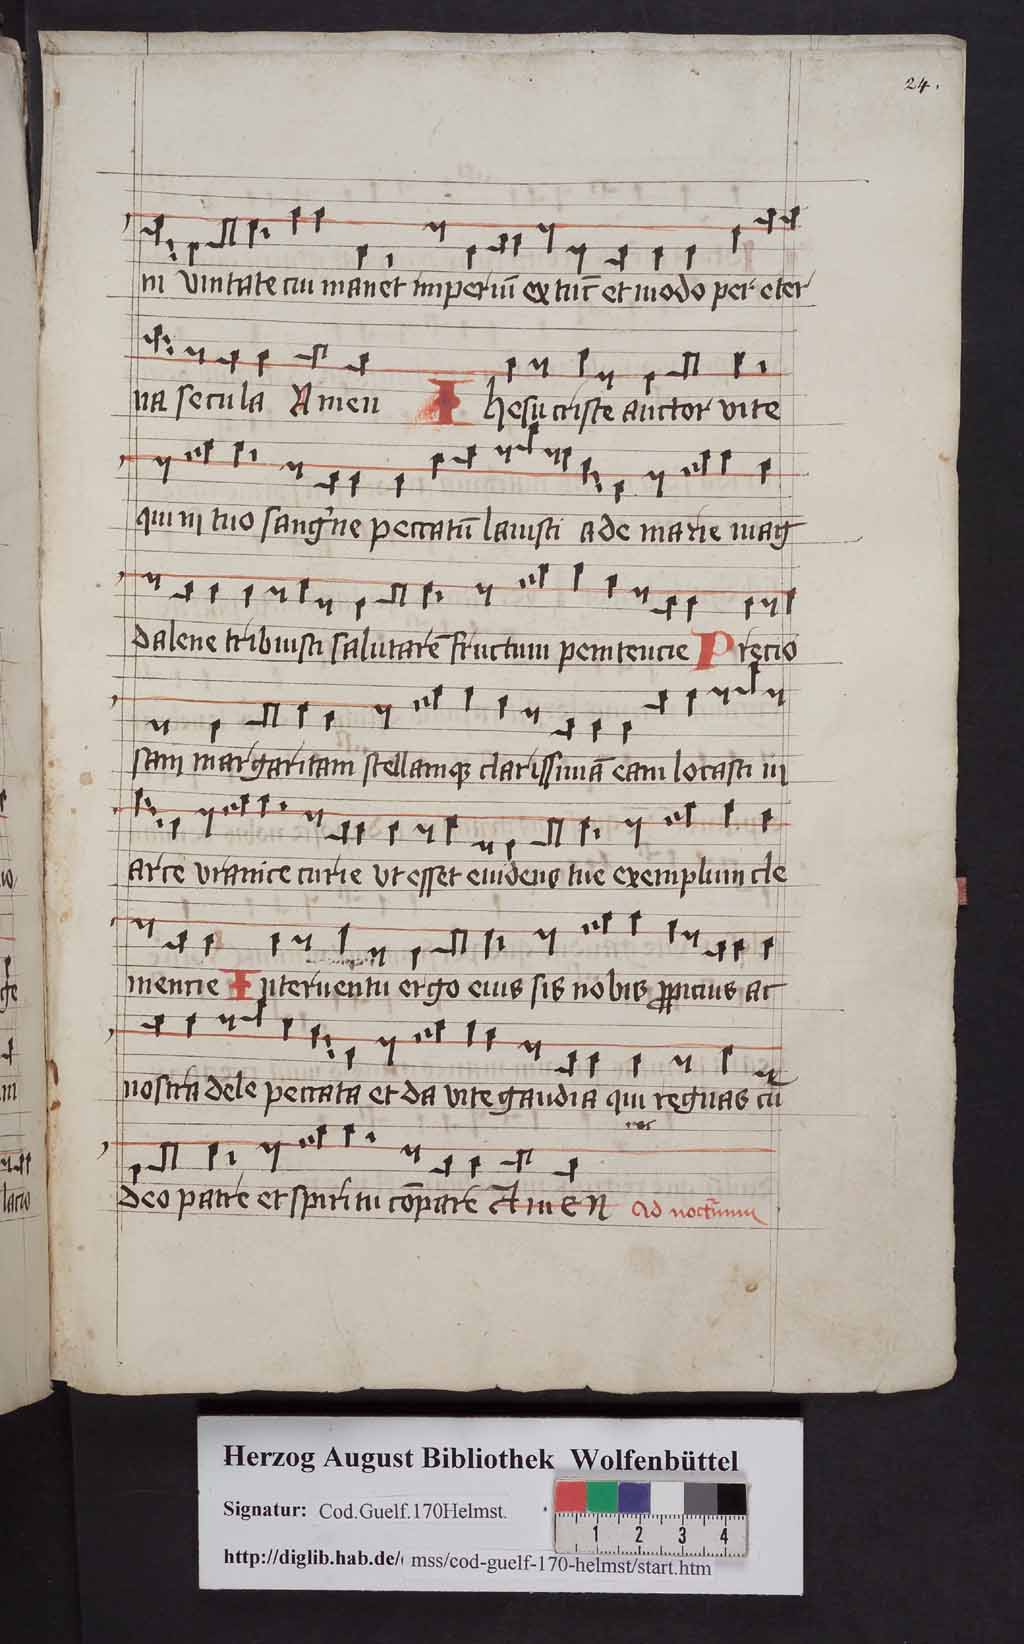 24.
in vnitate cui manet imperiū ex tūc et modo per eter
na secula Amen Ihesu criste auctor vite
qui in tuo sang'ne peccatū lauisti a de marie mag
dalene tribuisti salutarē fructum penitencie Precio
sam margaritam stellamqȝ clarissimā eam locasti in
arce vranice curie vt esset euidens tue exemplum cle
mencie Interuentu ergo eius sis nobis ꝓpicius ac
nostra dele peccata et da vite gaudia qui regnas cū
deo patre et spiritu cōpare Amen Ad nocturnum
Herzog August Bibliothek Wolfenbüttel
Signatur: Cod.Guelf.170Helmst.
1 2 3 4
http://diglib.hab.de/ mss/cod-guelf-170-helmst/start.htm